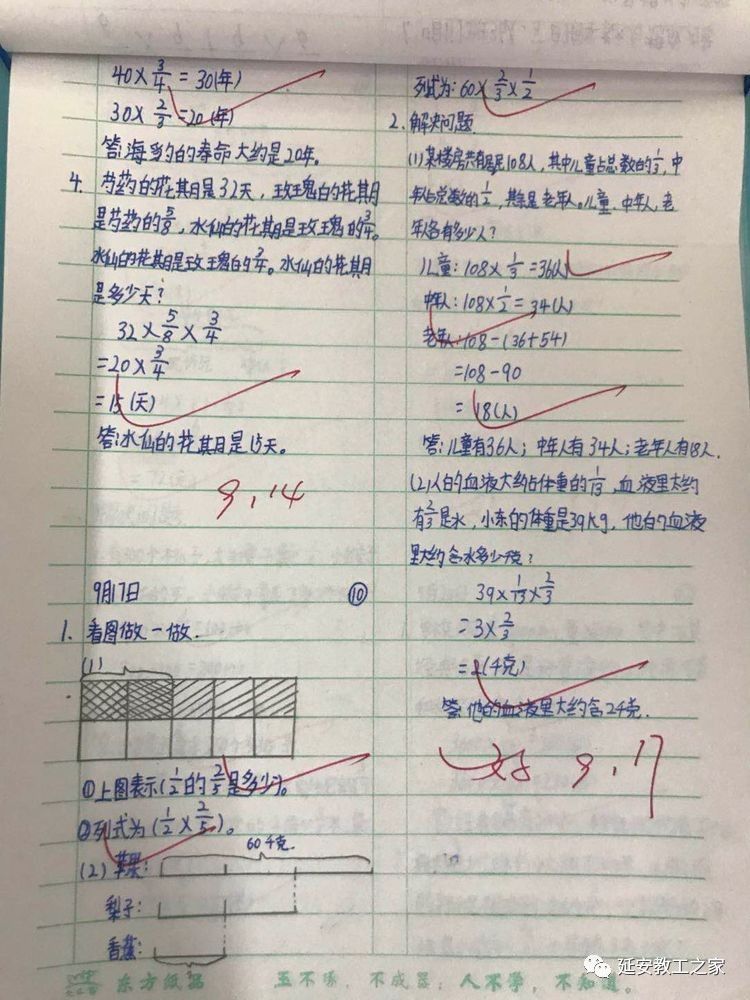 40×3/4=30(年)
30×2/3=20(年)
答:海豹的寿命大约是20年。
4. 芍药的花期是32天,玫瑰的花期
是芍药的5/8,水仙的花期是玫瑰的3/4。
水仙的花期是玫瑰的3/4。水仙的花期
是多少天?
32×5/8×3/4
=20×3/4
=15(天)
答:水仙的花期是15天。
9,14
9月17日 ⑩
1. 看图做一做.
(1)
①上图表示(1/2的2/5是多少)。
②列式为(1/2×2/5)。
60千克
(2)苹果:
梨子:
香蕉:
?
列式为:60×2/3×1/2
2.解决问题
(1)某楼房共有居民108人,其中儿童占总数的1/3,中
年人占总数的1/2,其余是老年人。儿童、中年人、老
年人各有多少人?
儿童:108×1/3=36(人)
中年人:108×1/2=34(人)
老年人:108-(36+54)
=108-90
=18(人)
答:儿童有36人;中年人有34人;老年人有18人.
(2)人的血液大约占体重的1/13,血液里大约
有2/3是水,小东的体重是39kg,他的血液
里大约含水多少千克?
39×1/13×2/3
=3×2/3
=2(千克)
答:他的血液里大约含2千克.
好 9,17
东方纸品 玉不琢,不成器;人不学,不知道。
延安教工之家